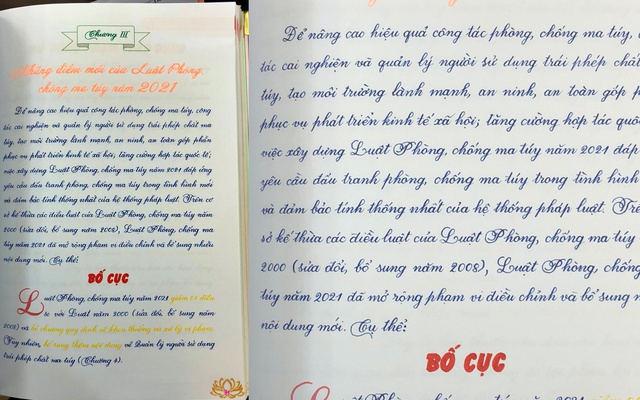 Chương III
Những điểm mới của Luật Phòng,
chống ma túy năm 2021
Để nâng cao hiệu quả công tác phòng, chống ma túy, công
tác cai nghiện và quản lý người sử dụng trái phép chất ma
túy, tạo môi trường lành mạnh, an ninh, an toàn góp phần
phục vụ phát triển kinh tế xã hội; tăng cường hợp tác quốc tế;
việc xây dựng Luật Phòng, chống ma túy năm 2021 đáp ứng
yêu cầu đấu tranh phòng, chống ma túy trong tình hình mới
và đảm bảo tính thống nhất của hệ thống pháp luật. Trên cơ
sở kế thừa các điều luật của Luật Phòng, chống ma túy năm
2000 (sửa đổi, bổ sung năm 2008), Luật Phòng, chống ma
túy năm 2021 đã mở rộng phạm vi điều chỉnh và bổ sung nhiều
nội dung mới. Cụ thể:
BỐ CỤC
Luật Phòng, chống ma túy năm 2021 giảm 01 điều
so với Luật năm 2000 (sửa đổi, bổ sung năm
2008) và bỏ chương quy định về khen thưởng và xử lý vi phạm.
Tuy nhiên, bổ sung thêm nội dung về Quản lý người sử dụng
trái phép chất ma túy (Chương 4).
Để nâng cao hiệu quả công tác phòng, chống ma túy,
tác cai nghiện và quản lý người sử dụng trái phép chất
túy, tạo môi trường lành mạnh, an ninh, an toàn góp
phục vụ phát triển kinh tế xã hội; tăng cường hợp tác quốc
việc xây dựng Luật Phòng, chống ma túy năm 2021 đáp
yêu cầu đấu tranh phòng, chống ma túy trong tình hình
và đảm bảo tính thống nhất của hệ thống pháp luật. Trê
sở kế thừa các điều luật của Luật Phòng, chống ma túy
2000 (sửa đổi, bổ sung năm 2008), Luật Phòng, chống
túy năm 2021 đã mở rộng phạm vi điều chỉnh và bổ sung n
nội dung mới. Cụ thể:
BỐ CỤC